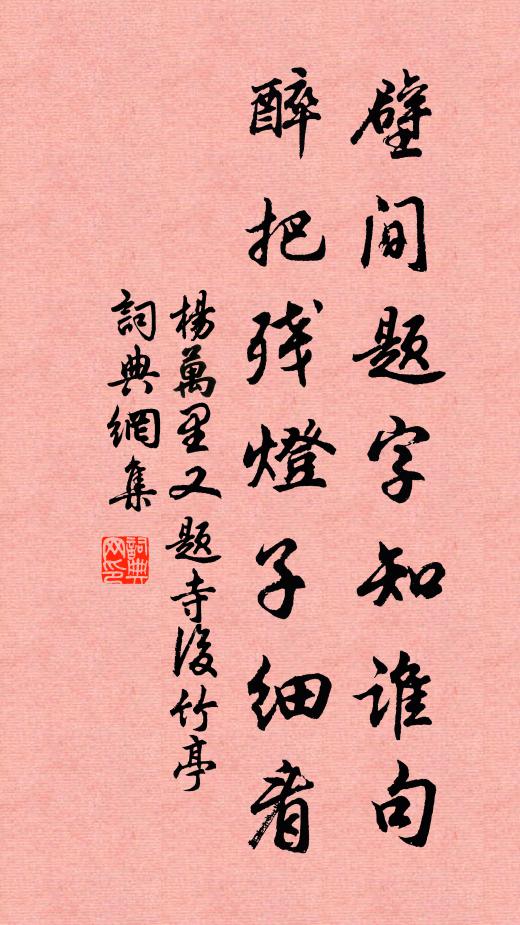 壁间题字知谁句
醉把残燈子细看
楊萬里又题寺後竹亭
詞典網集
詞典网印